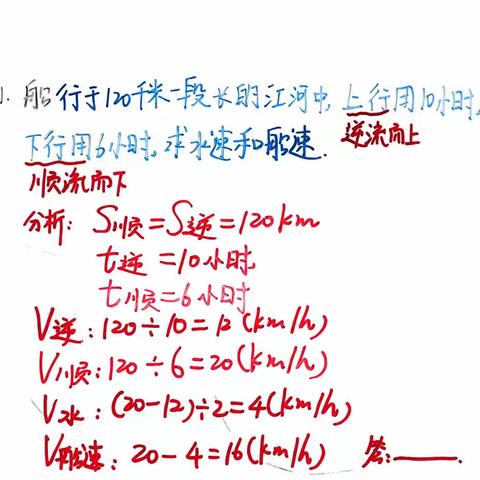 1. 船行于120千米一段长的江河中,上行用10小时,
逆流而上
下行用6小时,求水速和船速.
顺流而下
分析: S顺=S逆=120km
t逆=10小时
t顺=6小时
V逆:120÷10=12(km/h)
V顺:120÷6=20(km/h)
V水:(20-12)÷2=4(km/h)
V船速:20-4=16(km/h) 答:____.